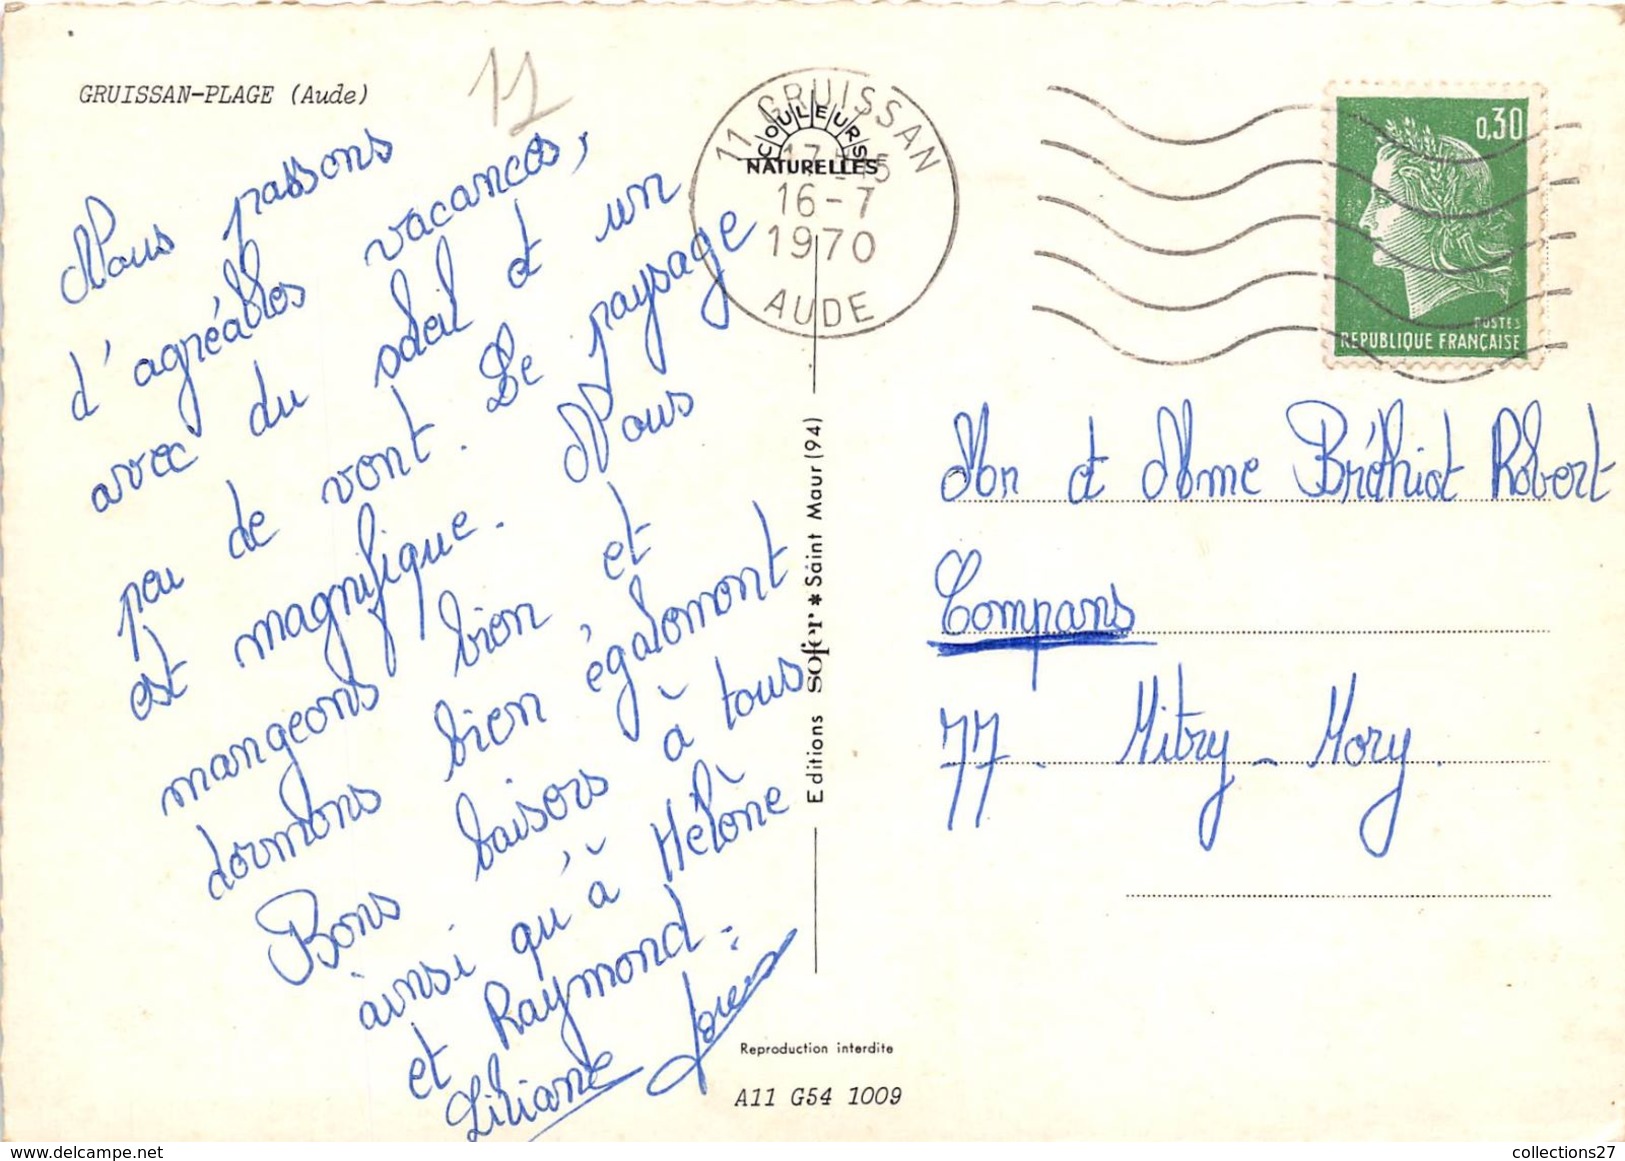 GRUISSAN-PLAGE (Aude)
11
Nous passons
d'agréables vacances,
avec du soleil et un
peu de vent. Le paysage
est magnifique. Nous
mangeons bien et
dormons bien également
Bons baisers à tous
ainsi qu'à Hélène
et Raymond.
Liliane
COULEURS
NATURELLES
11 GRUISSAN
16-7
1970
AUDE
0,30
POSTES
REPUBLIQUE FRANÇAISE
Editions sofer * Saint Maur (94)
Mr et Mme Bréthiot Robert
Compans
77. Mitry-Mory.
Reproduction interdite
A11 G54 1009
delcampe.net
collections27